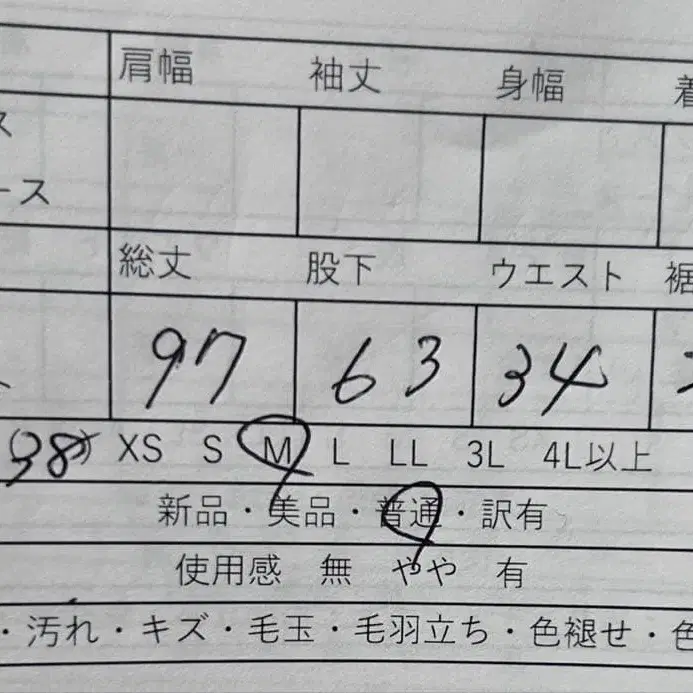 肩幅 袖丈 身幅 着
ス
ース
総丈 股下 ウエスト 裾
97 63 34
(38) XS S M L LL 3L 4L以上
新品・美品・普通・訳有
使用感 無 やや 有
・汚れ・キズ・毛玉・毛羽立ち・色褪せ・色